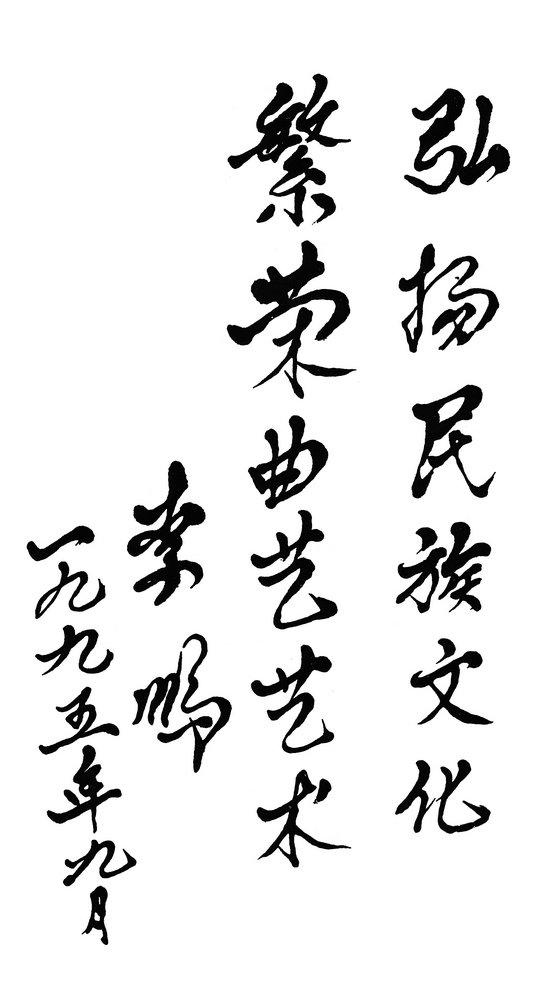 弘扬民族文化
繁荣曲艺艺术
李鹏
一九九五年九月